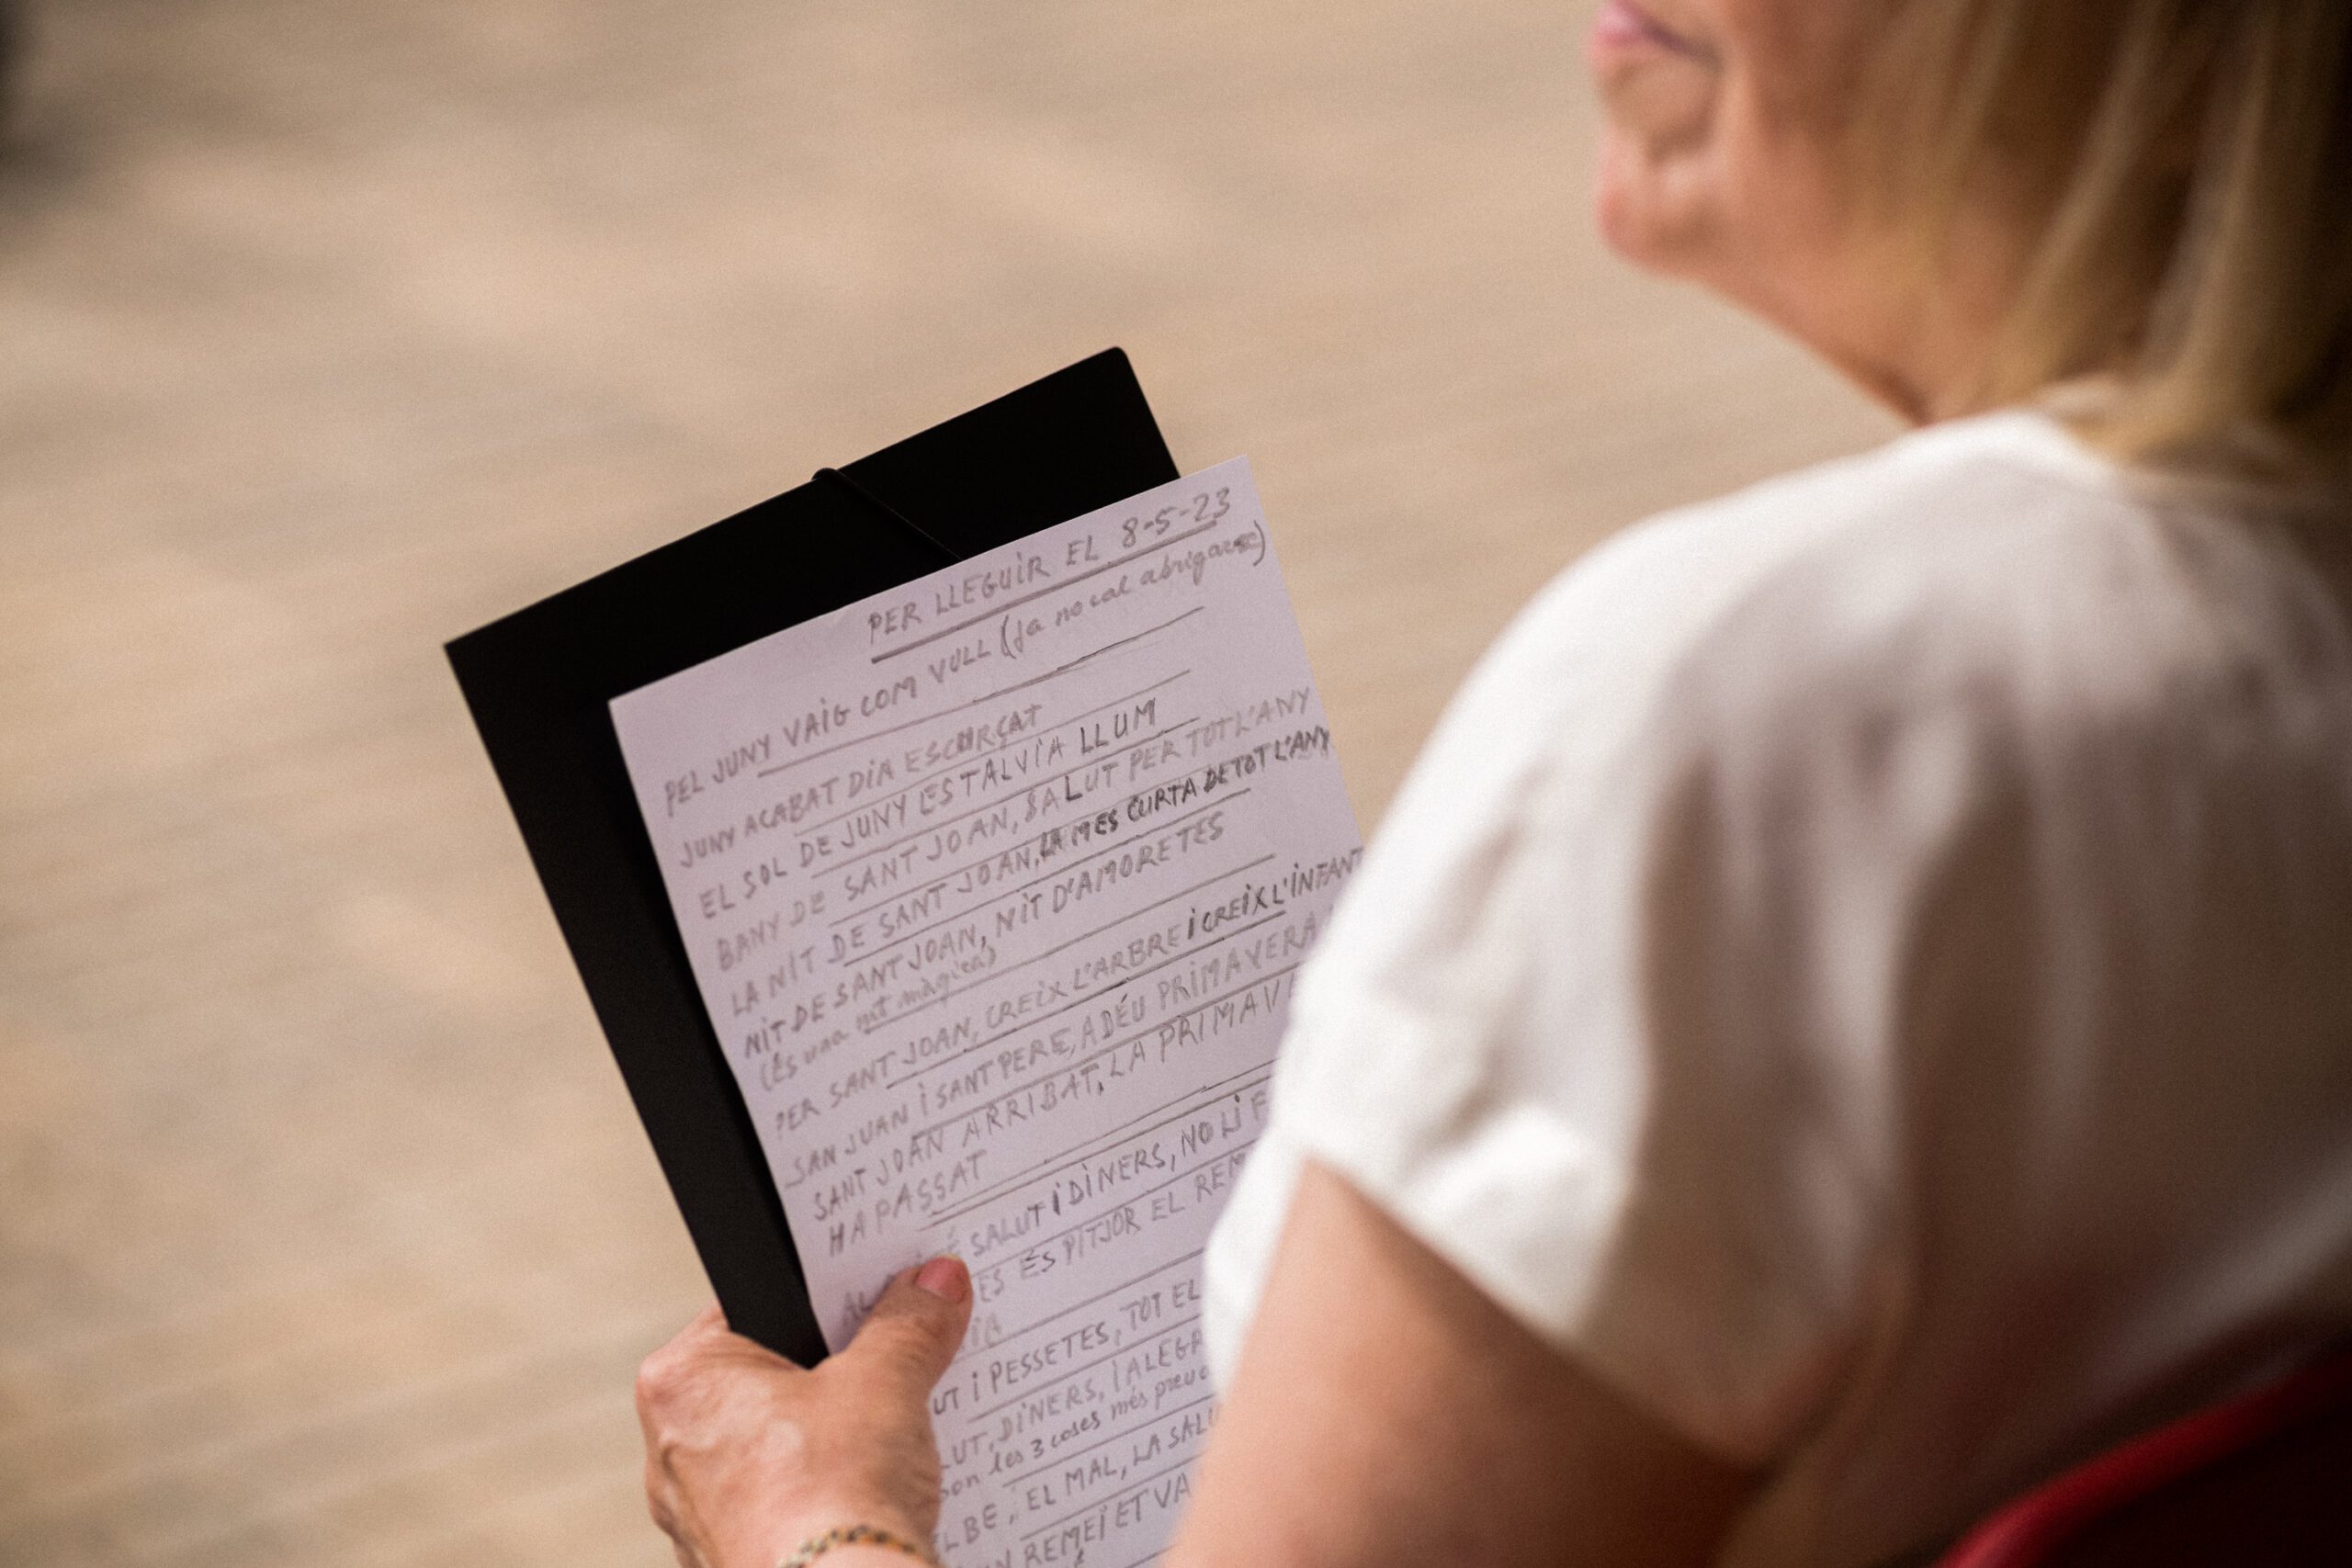 PER LLEGUIR EL 8-5-23
PEL JUNY VAIG COM VULL (Ja no cal abrigarse)
JUNY ACABAT DIA ESCURÇAT
EL SOL DE JUNY ESTALVIA LLUM
BANY DE SANT JOAN, SALUT PER TOT L'ANY
LA NIT DE SANT JOAN, LA MES CURTA DE TOT L'ANY
NIT DE SANT JOAN, NIT D'AMORETES
(És una nit màgica)
PER SANT JOAN, CREIX L'ARBRE I CREIX L'INFANT
SAN JUAN I SANT PERE, ADÉU PRIMAVERA
SANT JOAN ARRIBAT, LA PRIMAV
HA PASSAT
SALUT I DINERS, NO LI F
ES ÉS PITJOR EL REM
IA
UT I PESSETES, TOT EL
LUT, DINERS, I ALEGR
son les 3 coses més preu
EL MAL, LA SALU
REMEI ET VA